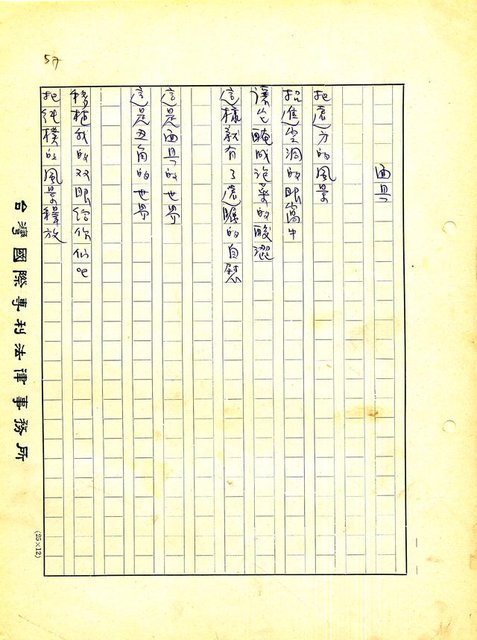 57
面具
把遠方的風景
招進空洞的眼窩中
讓它醃成泡菜的酸澀
這樣就有了遠矚的自慰
這是面具的世界
這是丑角的世界
移植我的双眼給你們吧
把純樸的風景釋放
台灣國際專利法律事務所
(25×12)